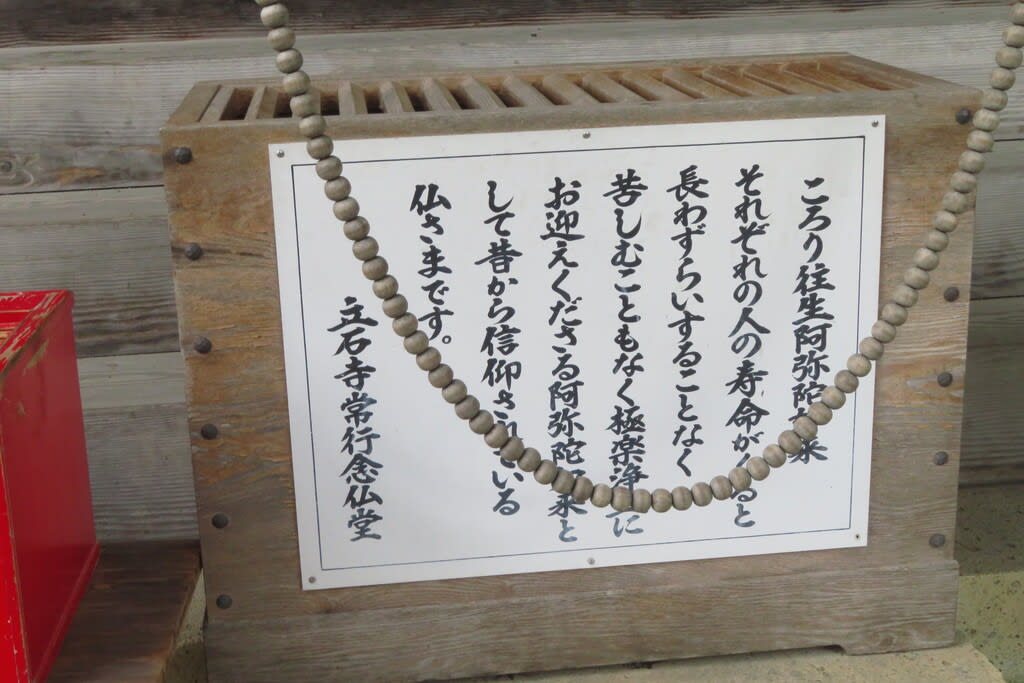 ころり往生阿弥陀如来
それぞれの人の寿命がくると
長わずらいすることなく
苦しむこともなく極楽浄土に
お迎えくださる阿弥陀如来と
して昔から信仰されている
仏さまです。
立石寺常行念仏堂